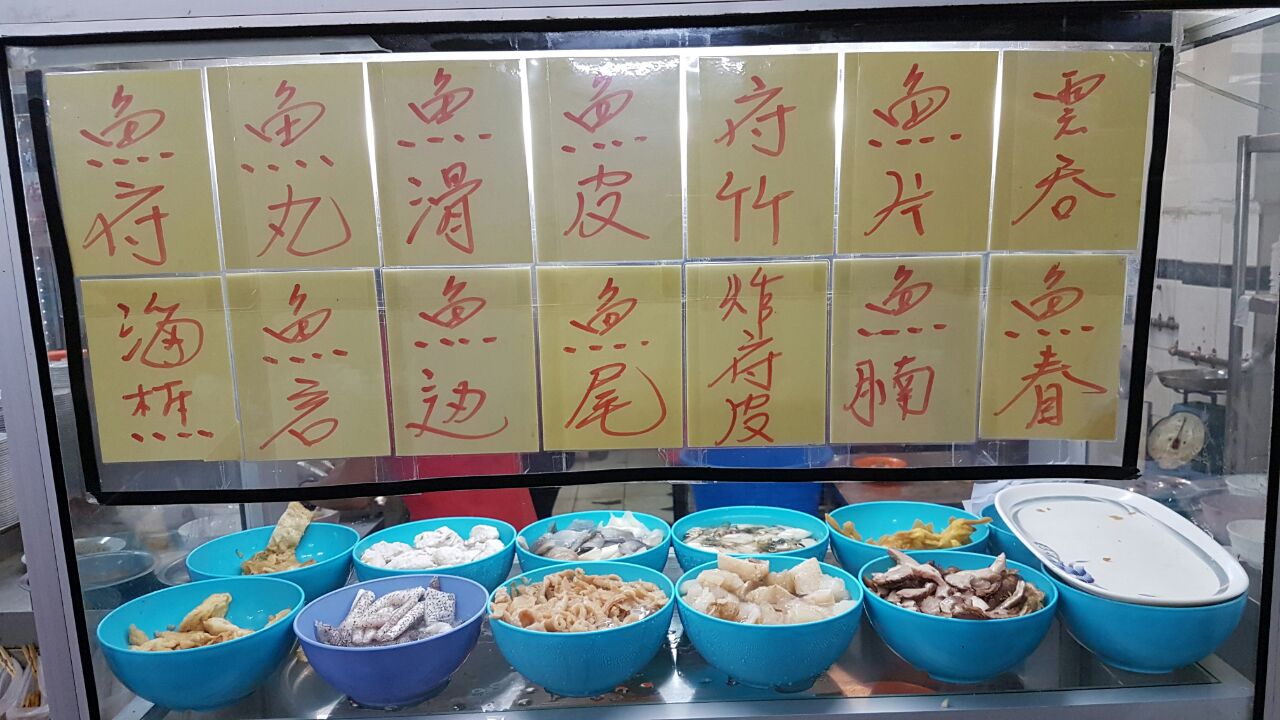 魚府
魚丸
魚滑
魚皮
府竹
魚片
雲吞
樵
魚
魚边
魚尾
炸府皮
魚腩
魚春